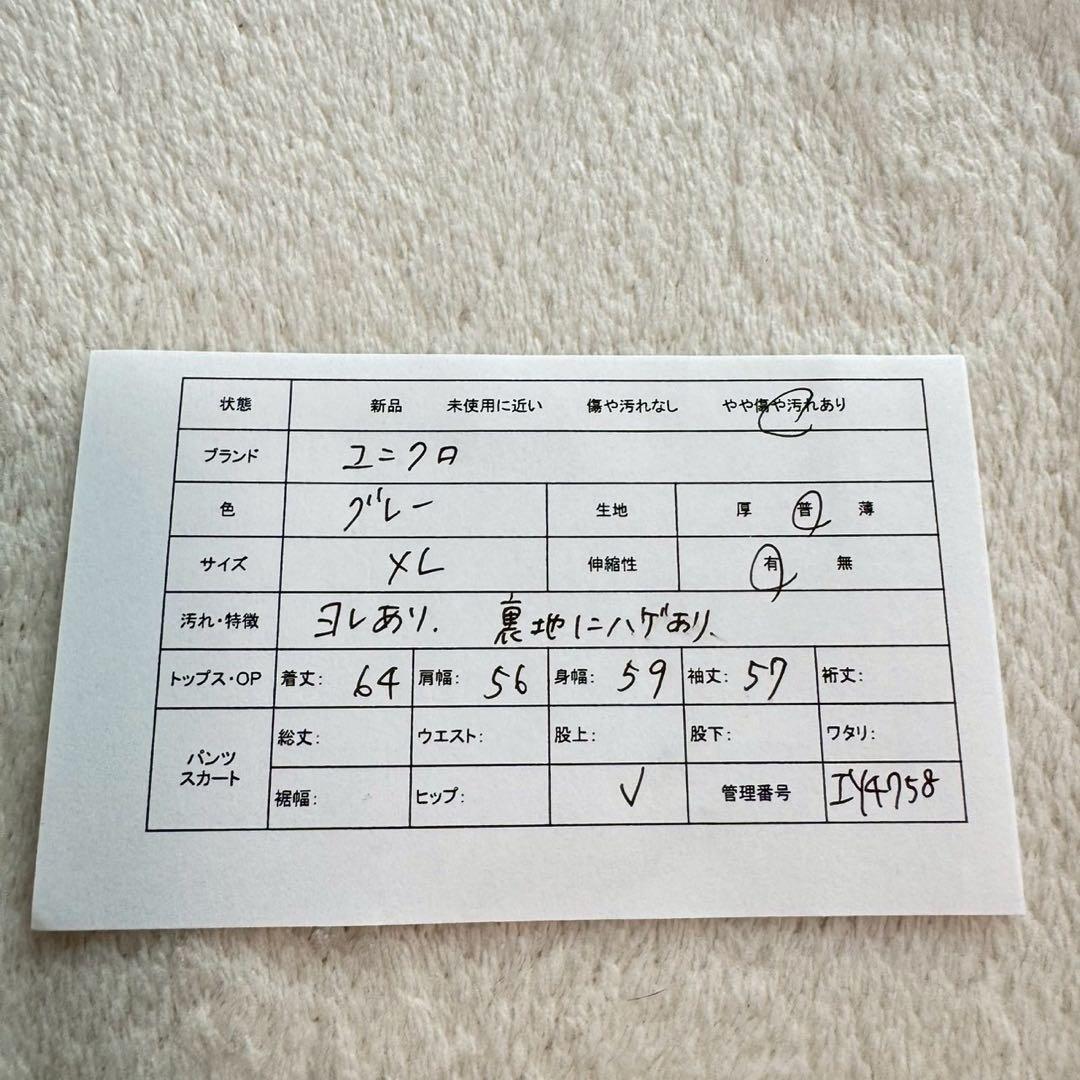 状態 新品 未使用に近い 傷や汚れなし やや傷や汚れあり
ブランド ユニクロ
色 グレー 生地 厚 普 薄
サイズ XL 伸縮性 有 無
汚れ・特徴 ヨレあり. 裏地にハゲあり.
トップス・OP 着丈: 64 肩幅: 56 身幅: 59 袖丈: 57 裄丈:
パンツ スカート
総丈: ウエスト: 股上: 股下: ワタリ:
裾幅: ヒップ: ✓ 管理番号 IY4758